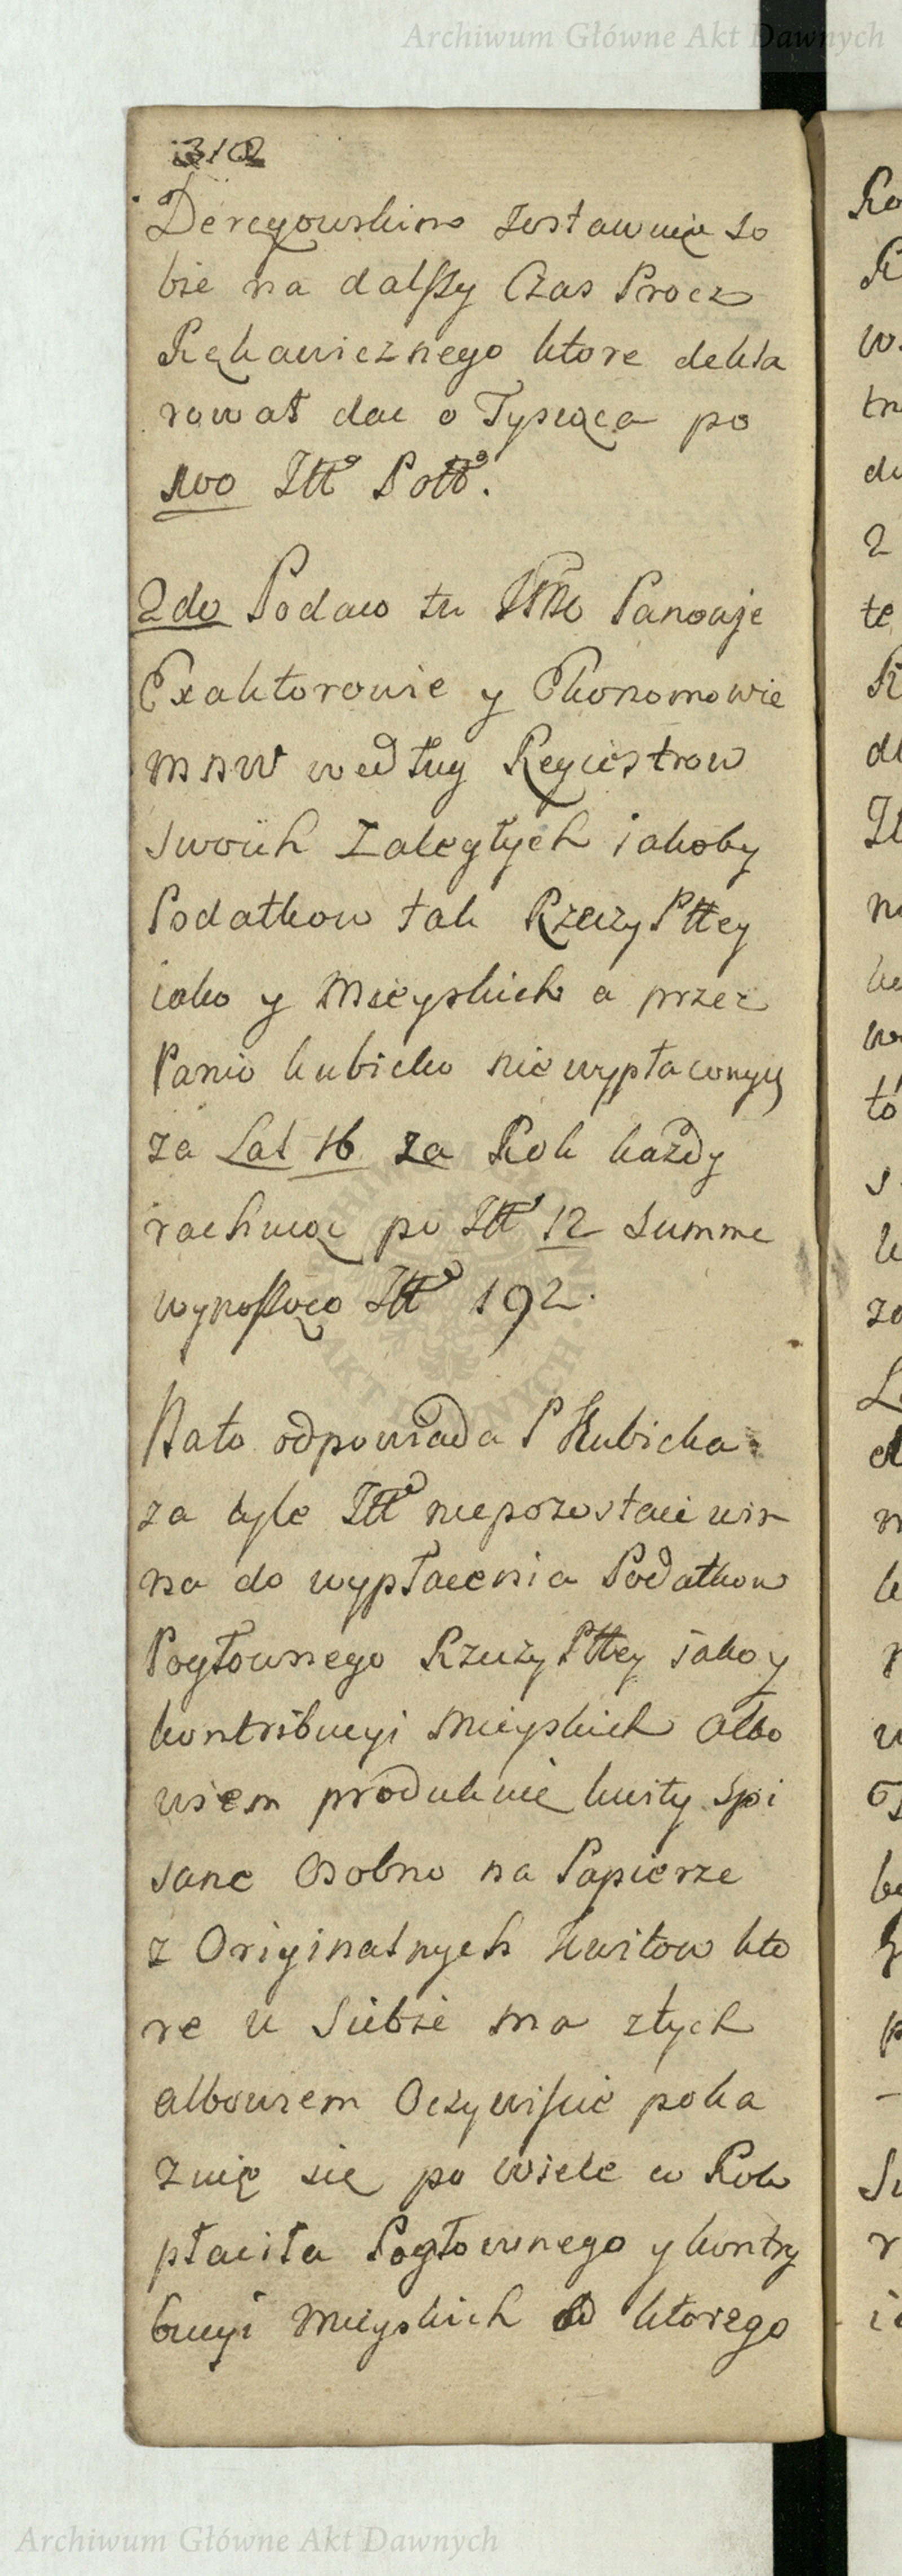 Archiwum Główne Akt Dawnych
312
Deręgowskim zostawuię so
bie na dalszy Czas Procz
Rękawicznego ktore dekla
rował dac o Tysiąca po
Złł Poł.
2do Podaio tu Panowje
Exaktorowie y Ekonomowie
MNW według Regiestrow
swoich Zaległych iakoby
Podatkow tak Rzeczy Pttey
iako y Mieyskich a przez
Panio Kubicko niewypłaconych
za Lat 16 za Rok każdy
rachuiąc po Złł 12 Summe
wynoszoco Złł 192.
Nato odpowiada P Kubicka
za tyle Złł niepozostaie win
na do wypłacenia Podatkow
Pogłownego Rzeczy Pttey iako y
kontribucyi Mieyskich Albo
wiem produkuie kwity spi
sane Osobno na Papierze
z Originalnych Kwitow kto
re u Siebie ma z tych
albowiem Oczywiscie poka
zuię się po wiele w Rok
płaciła Pogłownego y kontry
bucyi Mieyskich do ktorego
Archiwum Główne Akt Dawnych